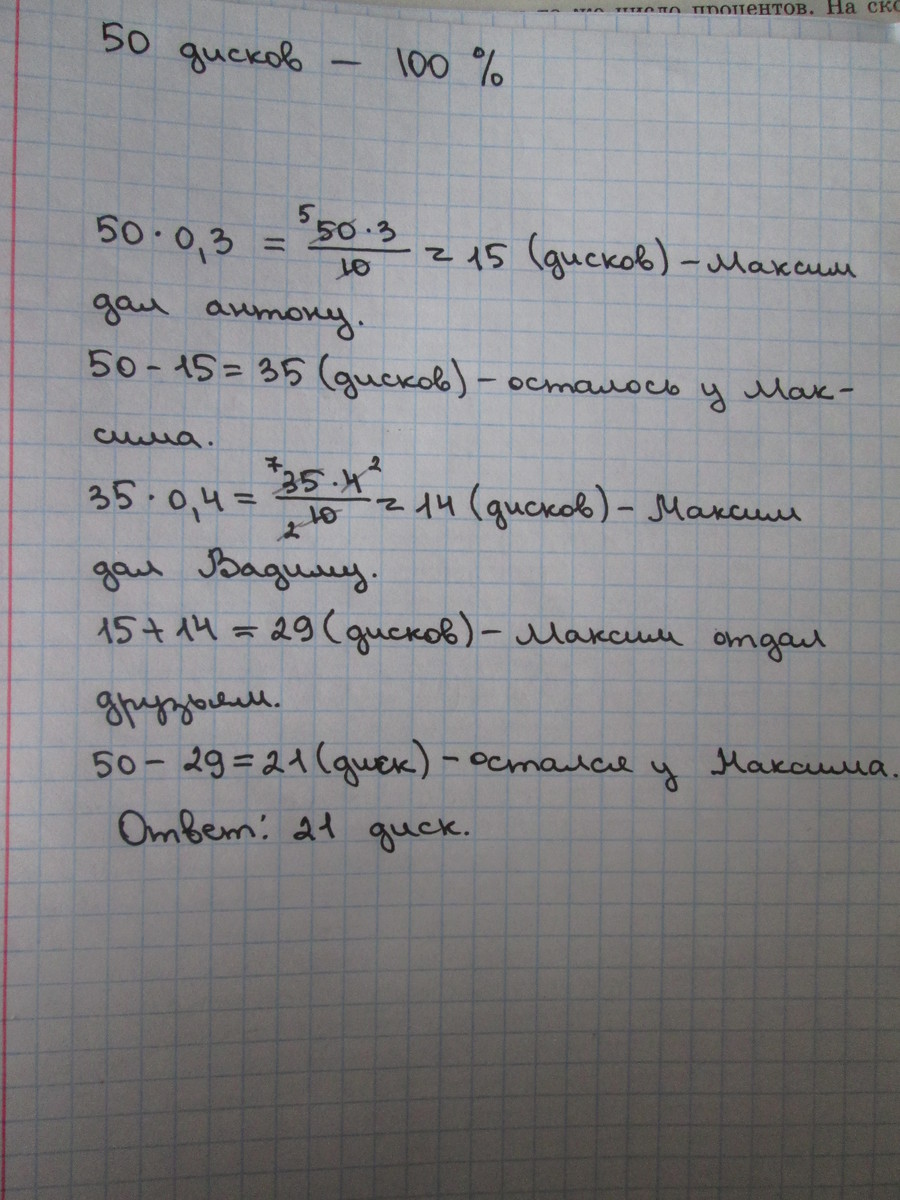 число процентов. На ско
50 дисков — 100 %
50 · 0,3 = ⁵50·3/10 = 15 (дисков) – Максим
дал антону.
50 – 15 = 35 (дисков) – осталось у Мак-
сима.
35 · 0,4 = ⁷35·4²/₂10 = 14 (дисков) – Максим
дал Вадиму.
15 + 14 = 29 (дисков) – Максим отдал
друзьям.
50 – 29 = 21 (диск) – остался у Максима.
Ответ: 21 диск.